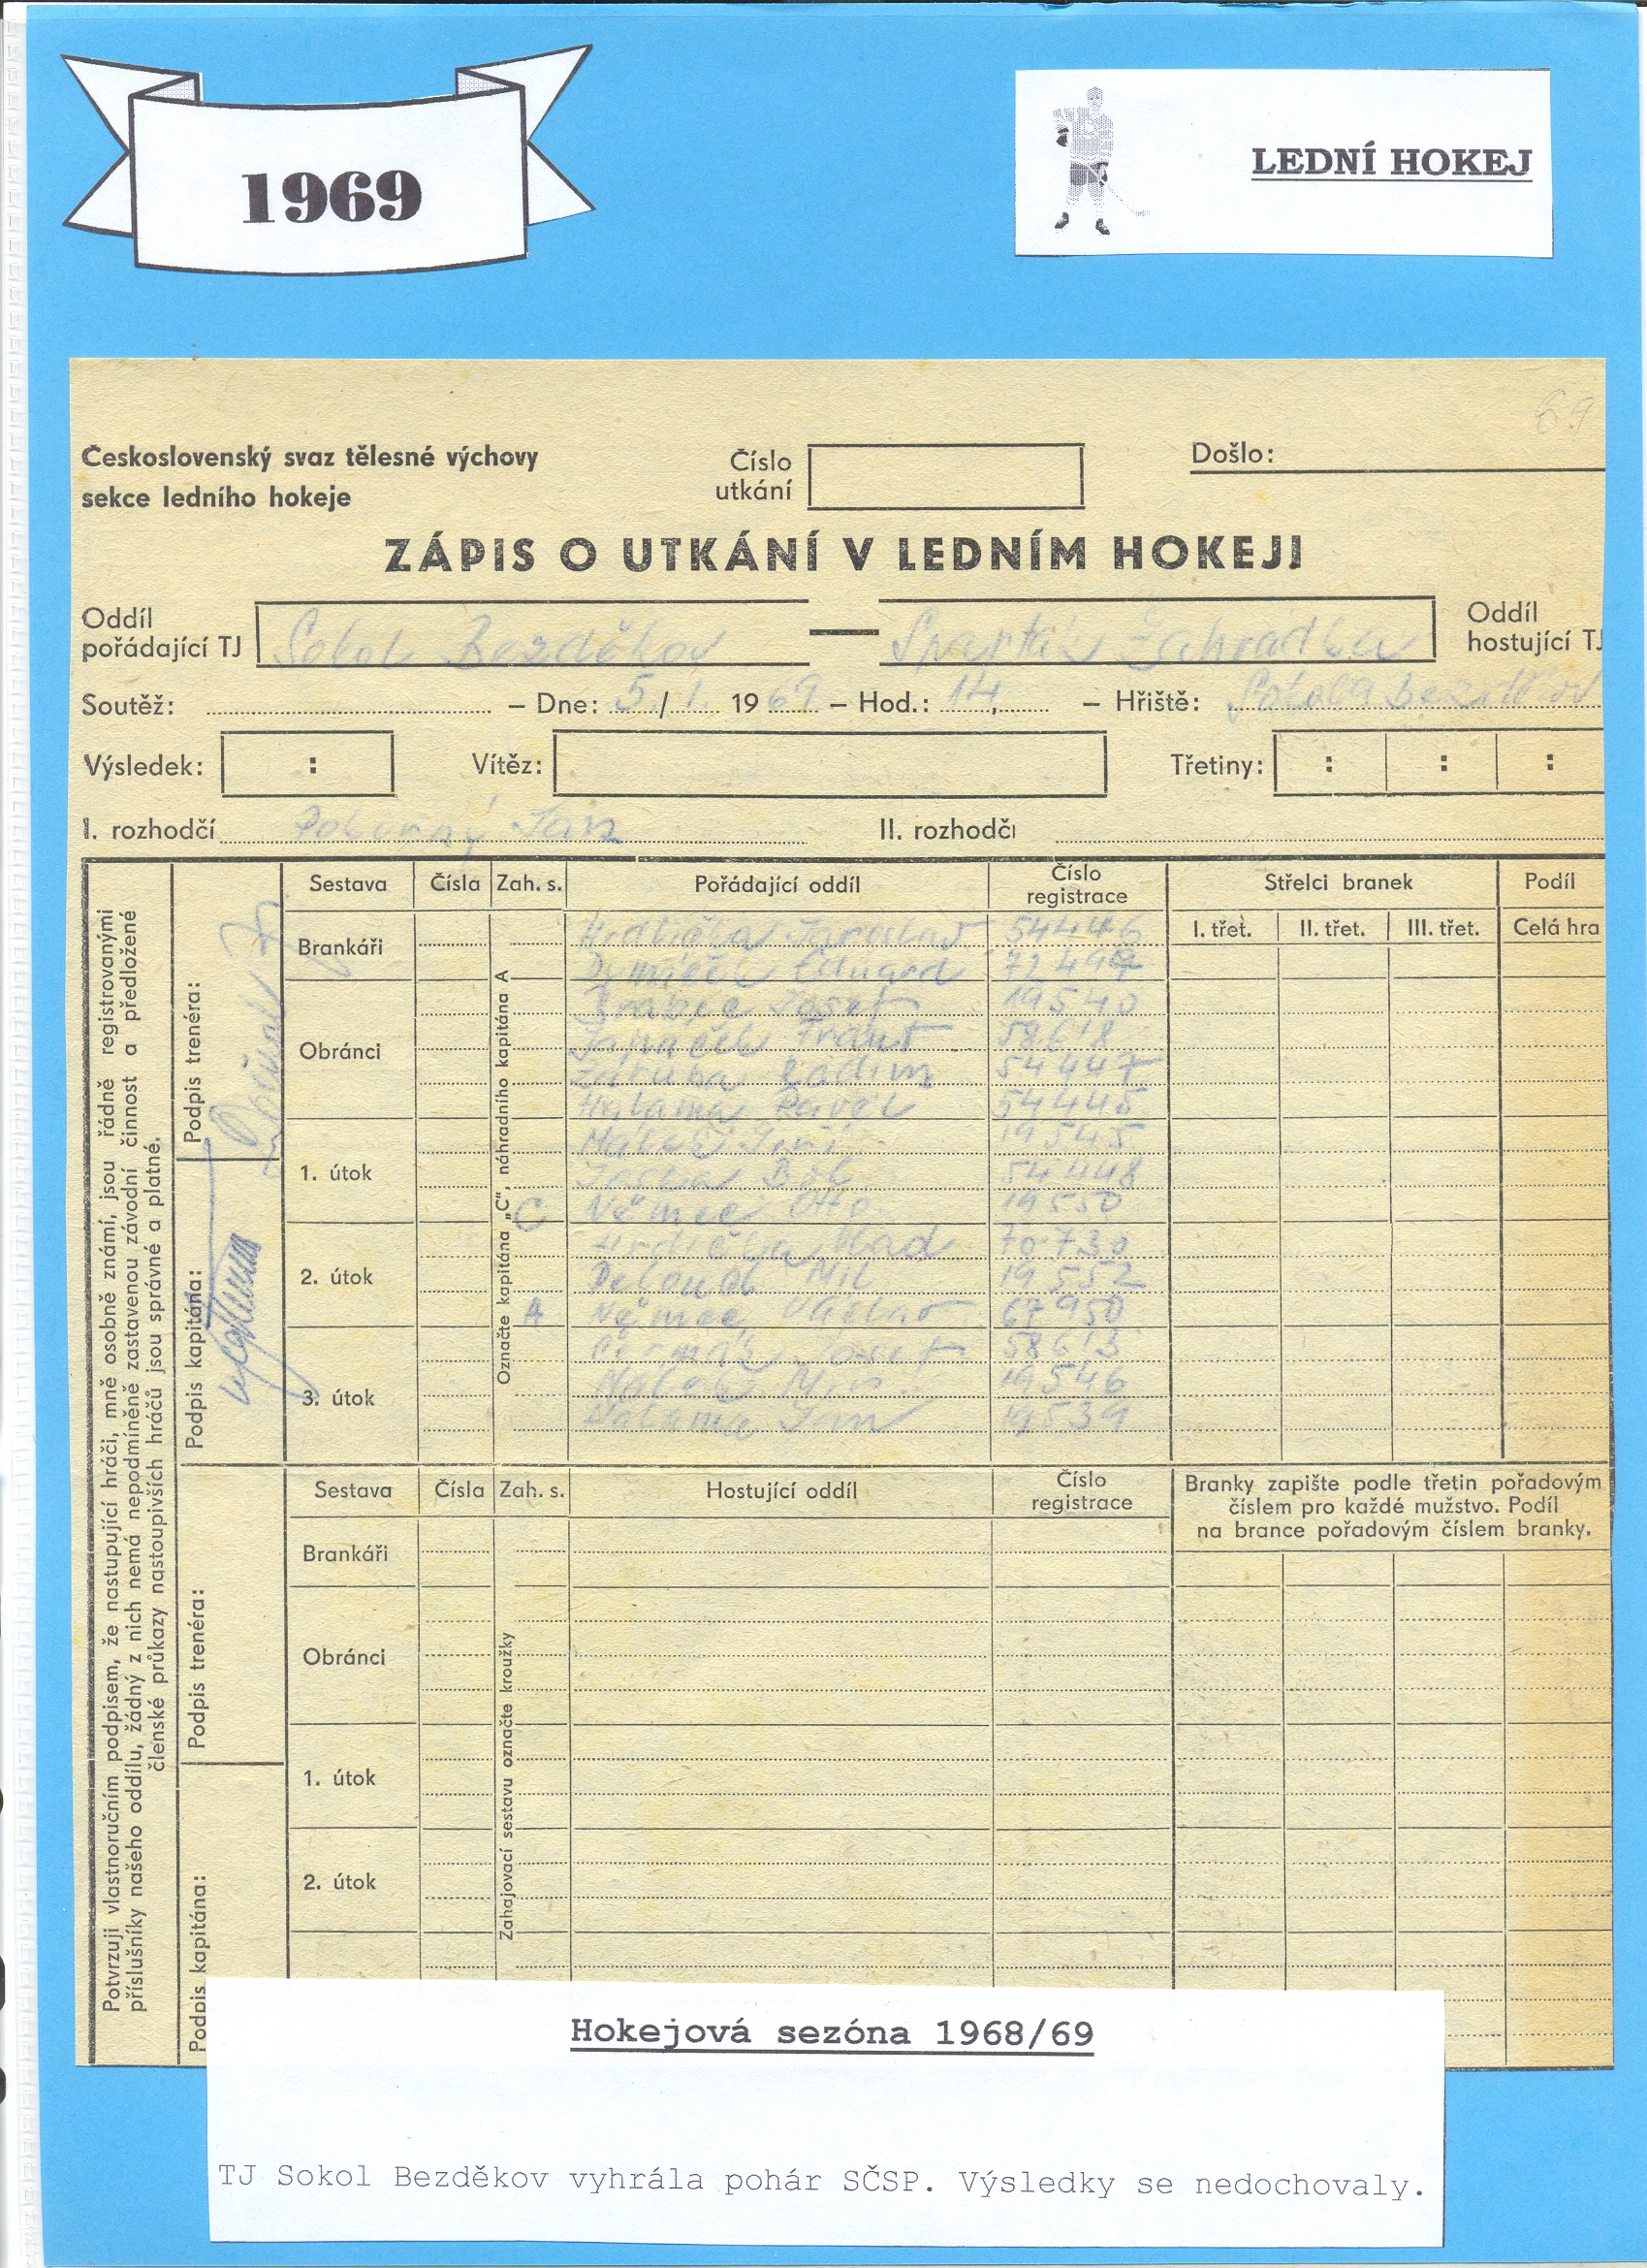 1969
LEDNÍ HOKEJ
69
Československý svaz tělesné výchovy
sekce ledního hokeje
Číslo utkání
Došlo:
ZÁPIS O UTKÁNÍ V LEDNÍM HOKEJI
Oddíl pořádající TJ Sokol Bezděkov — Spartak Zahrádka Oddíl hostující TJ
Soutěž: – Dne: 5./1. 1969 – Hod.: 14, – Hřiště: Sokola Bezděkov
Výsledek: : Vítěz: Třetiny: : : :
I. rozhodčí Pokorný Jan II. rozhodčí
Sestava Čísla Zah. s. Pořádající oddíl Číslo registrace Střelci branek Podíl
I. třet. II. třet. III. třet. Celá hra
Brankáři
Hrdlička Jaroslav 54446
Eduard 72497
Obránci
Josef 19540
Frant 58618
Záruba Radim 54447
Halama Pavel 54445
1. útok
Málek Jiří 19545
54448
C Němec Oto 19550
2. útok
Hrdlička Vlad 70730
Mil 19552
A Němec Václav 67950
3. útok
Čermák Josef 58613
Málek Mir. 19546
Halama Jan 19539
Označte kapitána „C", náhradního kapitána A
Potvrzuji vlastnoručním podpisem, že nastupující hráči, mně osobně známí, jsou řádně registrovanými
příslušníky našeho oddílu, žádný z nich nemá nepodmíněně zastavenou závodní činnost a předložené
členské průkazy nastoupivších hráčů jsou správné a platné.
Podpis trenéra:
Podpis kapitána:
Podpis trenéra:
Podpis kapitána:
Sestava Čísla Zah. s. Hostující oddíl Číslo registrace
Branky zapište podle třetin pořadovým
číslem pro každé mužstvo. Podíl
na brance pořadovým číslem branky.
Brankáři
Obránci
1. útok
2. útok
Zahajovací sestavu označte kroužky
Hokejová sezóna 1968/69
TJ Sokol Bezděkov vyhrála pohár SČSP. Výsledky se nedochovaly.